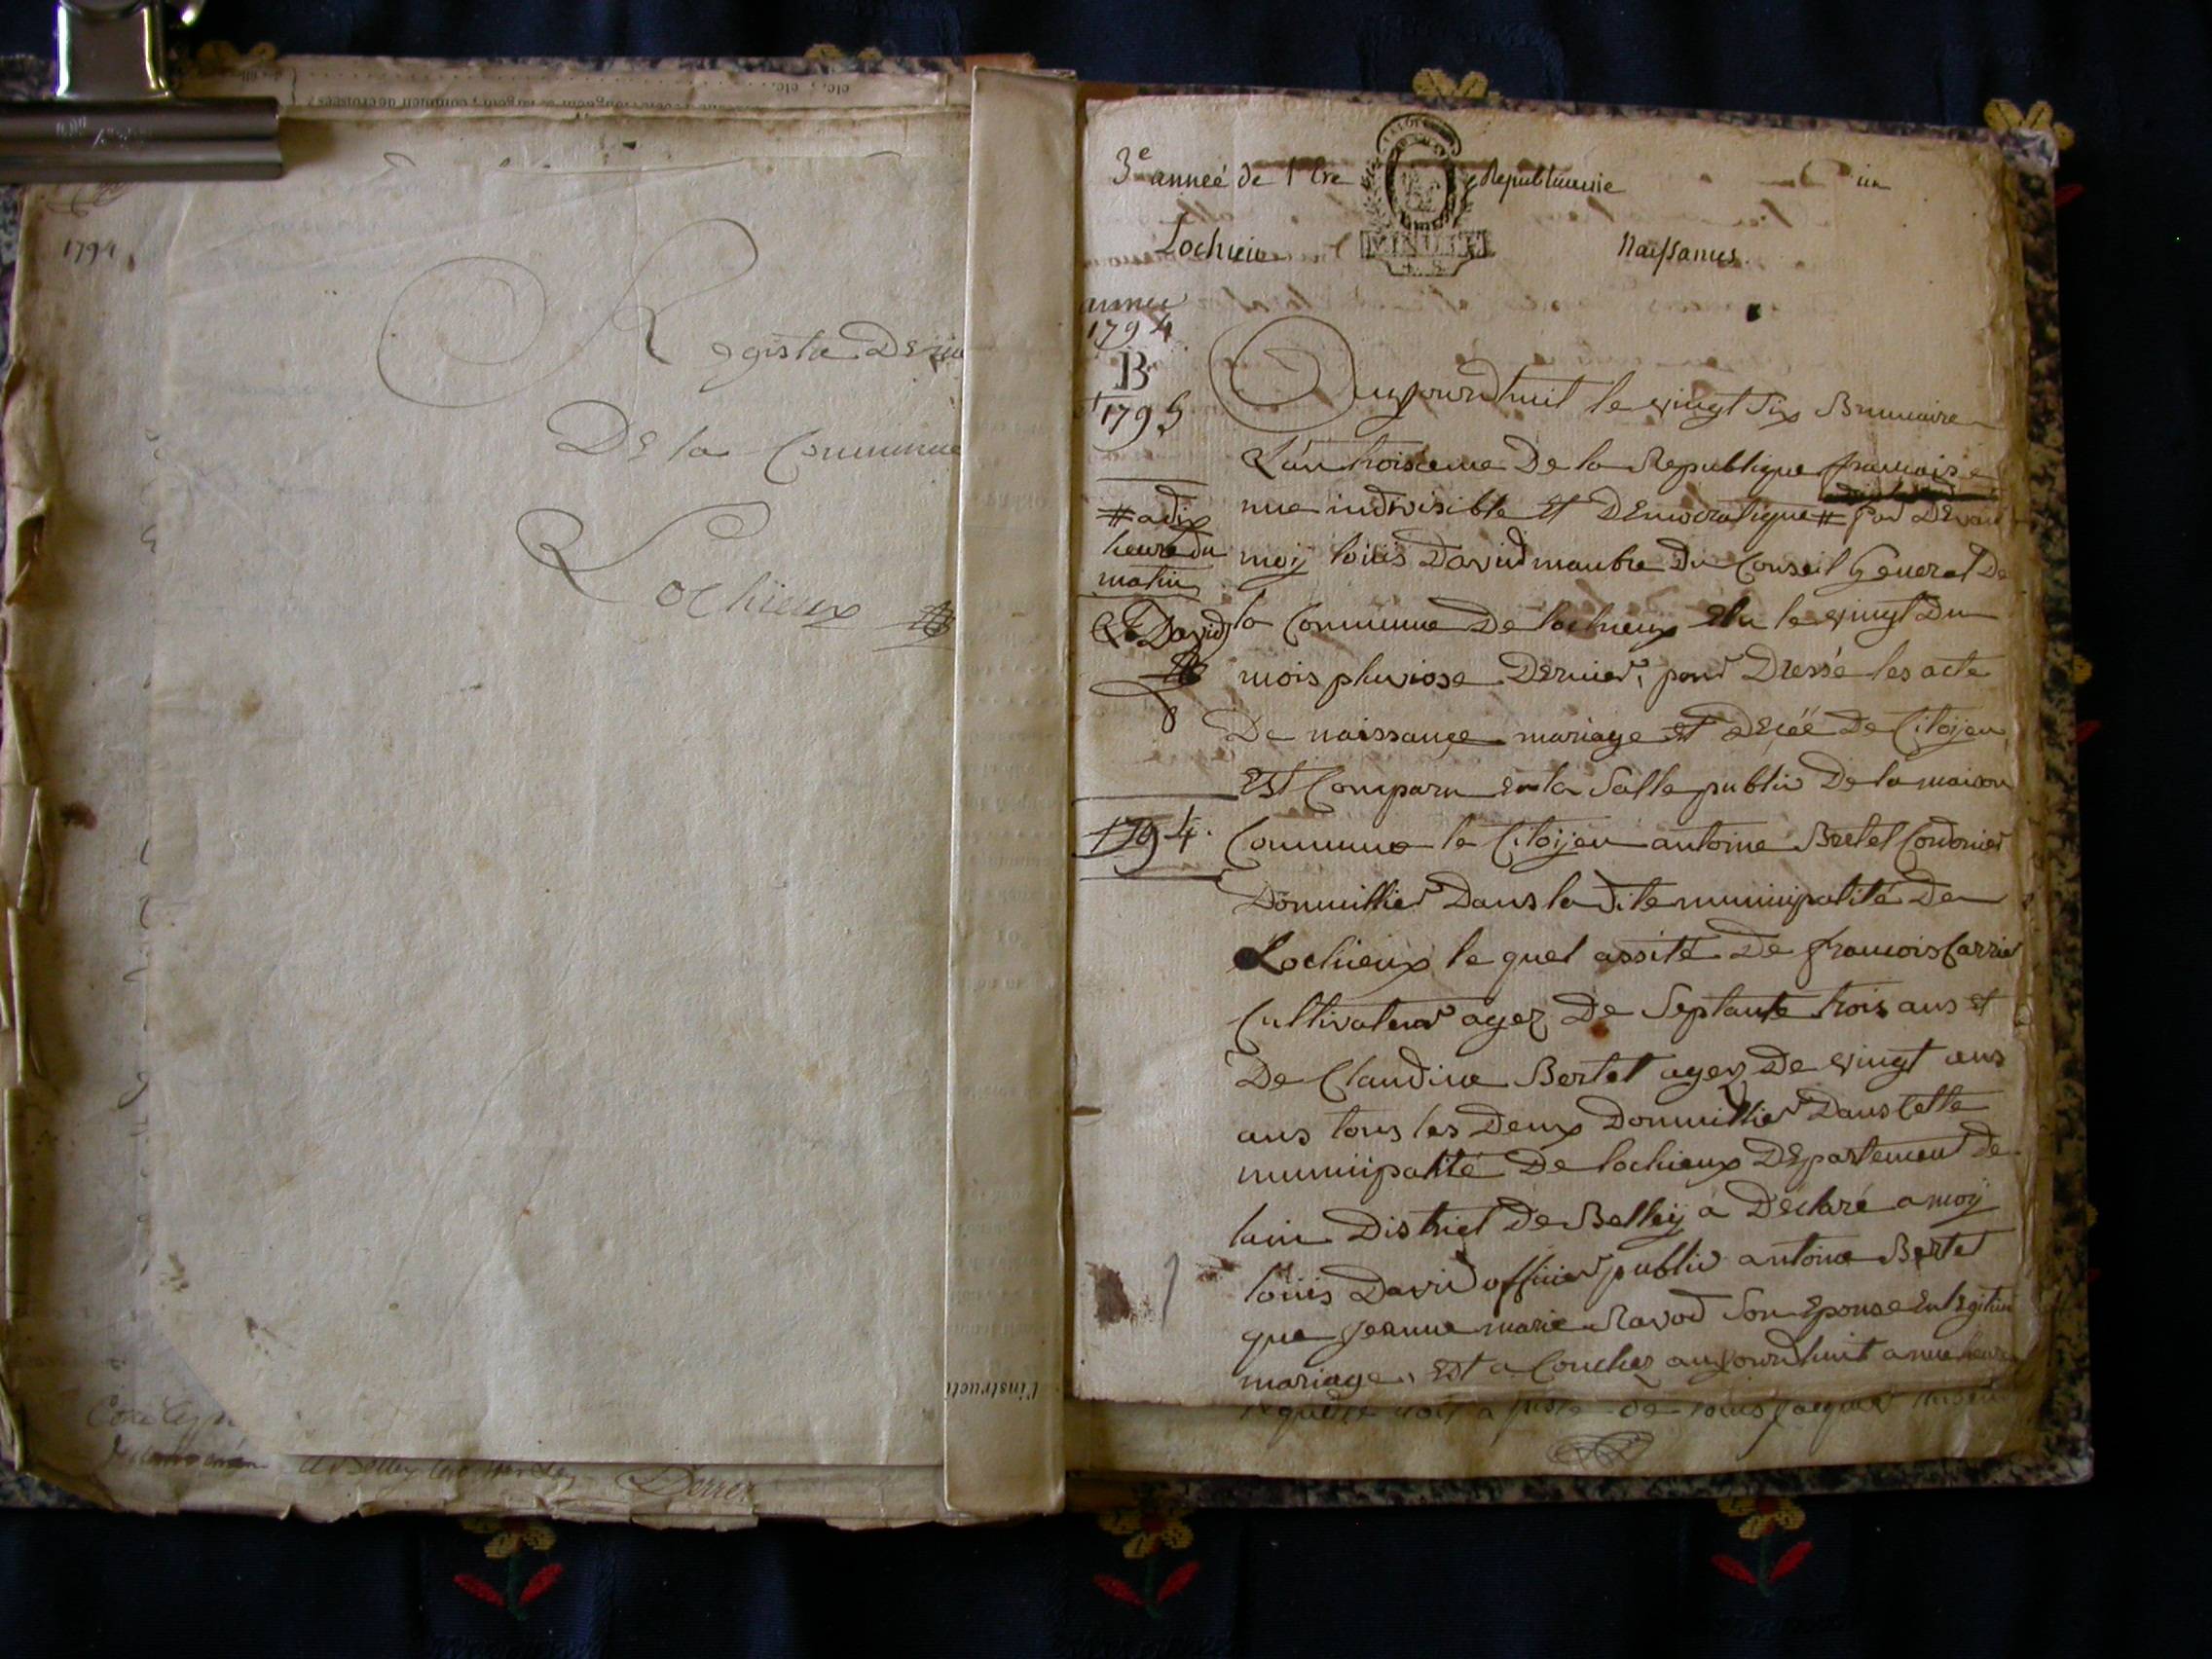 1794
Registre De
De la Commune
Lochieux
3e anneé de l'Ere Republicaine
un
MINUTE
Lochieu
Naissances.
annee
1794
B
1795
Aujourdhuit le vingt Six Brumaire
L'an troisieme De la Republique francoise
nue indivisible Et Democratique # par Devant
# a dix
heure du
matin
L David
moy louis David manbre Du Conseil General De
la Commune De lochieux Elu le vingt Du
mois pluviose Dernier, pour Dressé les acte
De naissance mariage et deceé De Citoijen
Est Comparu En la Salle public De la maison
1794.
Commune le Citoijen antoine Bertet Cordonier
Domicillier Dans la dite municipalité De
Lochieux le quel assité De francois Carrier
Cultivateur agez De Septante trois ans et
De Claudine Bertet agez De vingt ans
ans tous les Deux Domicillier Dans Cette
municipalité De lochieux Departement de
lain District De Belleij a Déclaré a moij
louis David officier public antoine Bertet
que jeanne marie Ravod Son Epouse En legitime
mariage, est a Couchez aujourdhuit a nue heure
De louis jacques
Derrer
l'instructi
etc., etc.